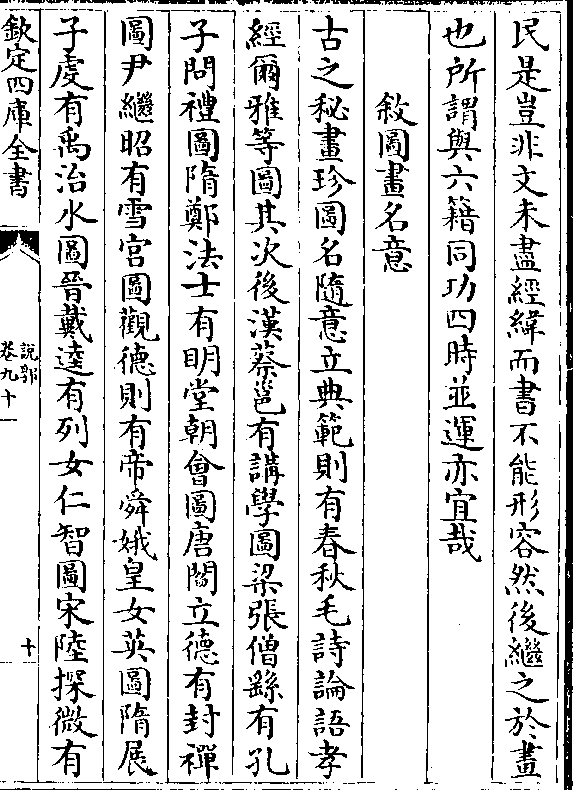 民是豈非文未盡經緯而書不能形容然後繼之於畫
也所謂與六籍同功四時並運亦宜哉
敘圖畫名意
古之秘畫珍圖名隨意立典範則有春秋毛詩論語孝
經爾雅等圖其次後漢蔡邕有講學圖梁張僧繇有孔
子問禮圖隋鄭法士有明堂朝會圖唐閻立德有封禪
圖尹繼昭有雪宮圖觀德則有帝舜娥皇女英圖隋展
子虔有禹治水圖晉戴逵有列女仁智圖宋陸探微有
欽定四庫全書
說郛
卷九十
十